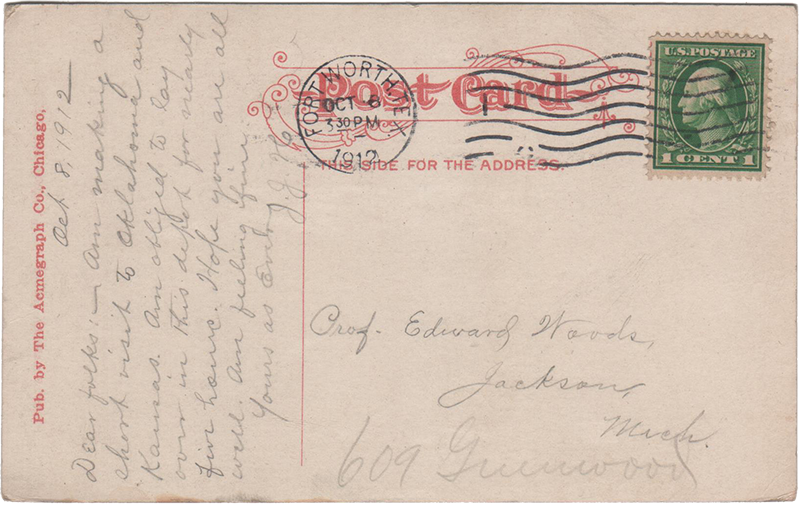 Pub. by The Acmegraph Co., Chicago.
Oct 8 1912
Dear folks:— Am making a
short visit to Oklahoma and
Kansas. Am obliged to lay
over in this depot for nearly
five hours. Hope you are all
well. Am feeling fine.
Yours as Ever
Post Card
THIS SIDE FOR THE ADDRESS.
FORT WORTH, TEX
OCT 8
3 30 PM
1912
U.S. POSTAGE
1 CENT 1
Prof. Edward Woods,
Jackson,
Mich.
609 Greenwood